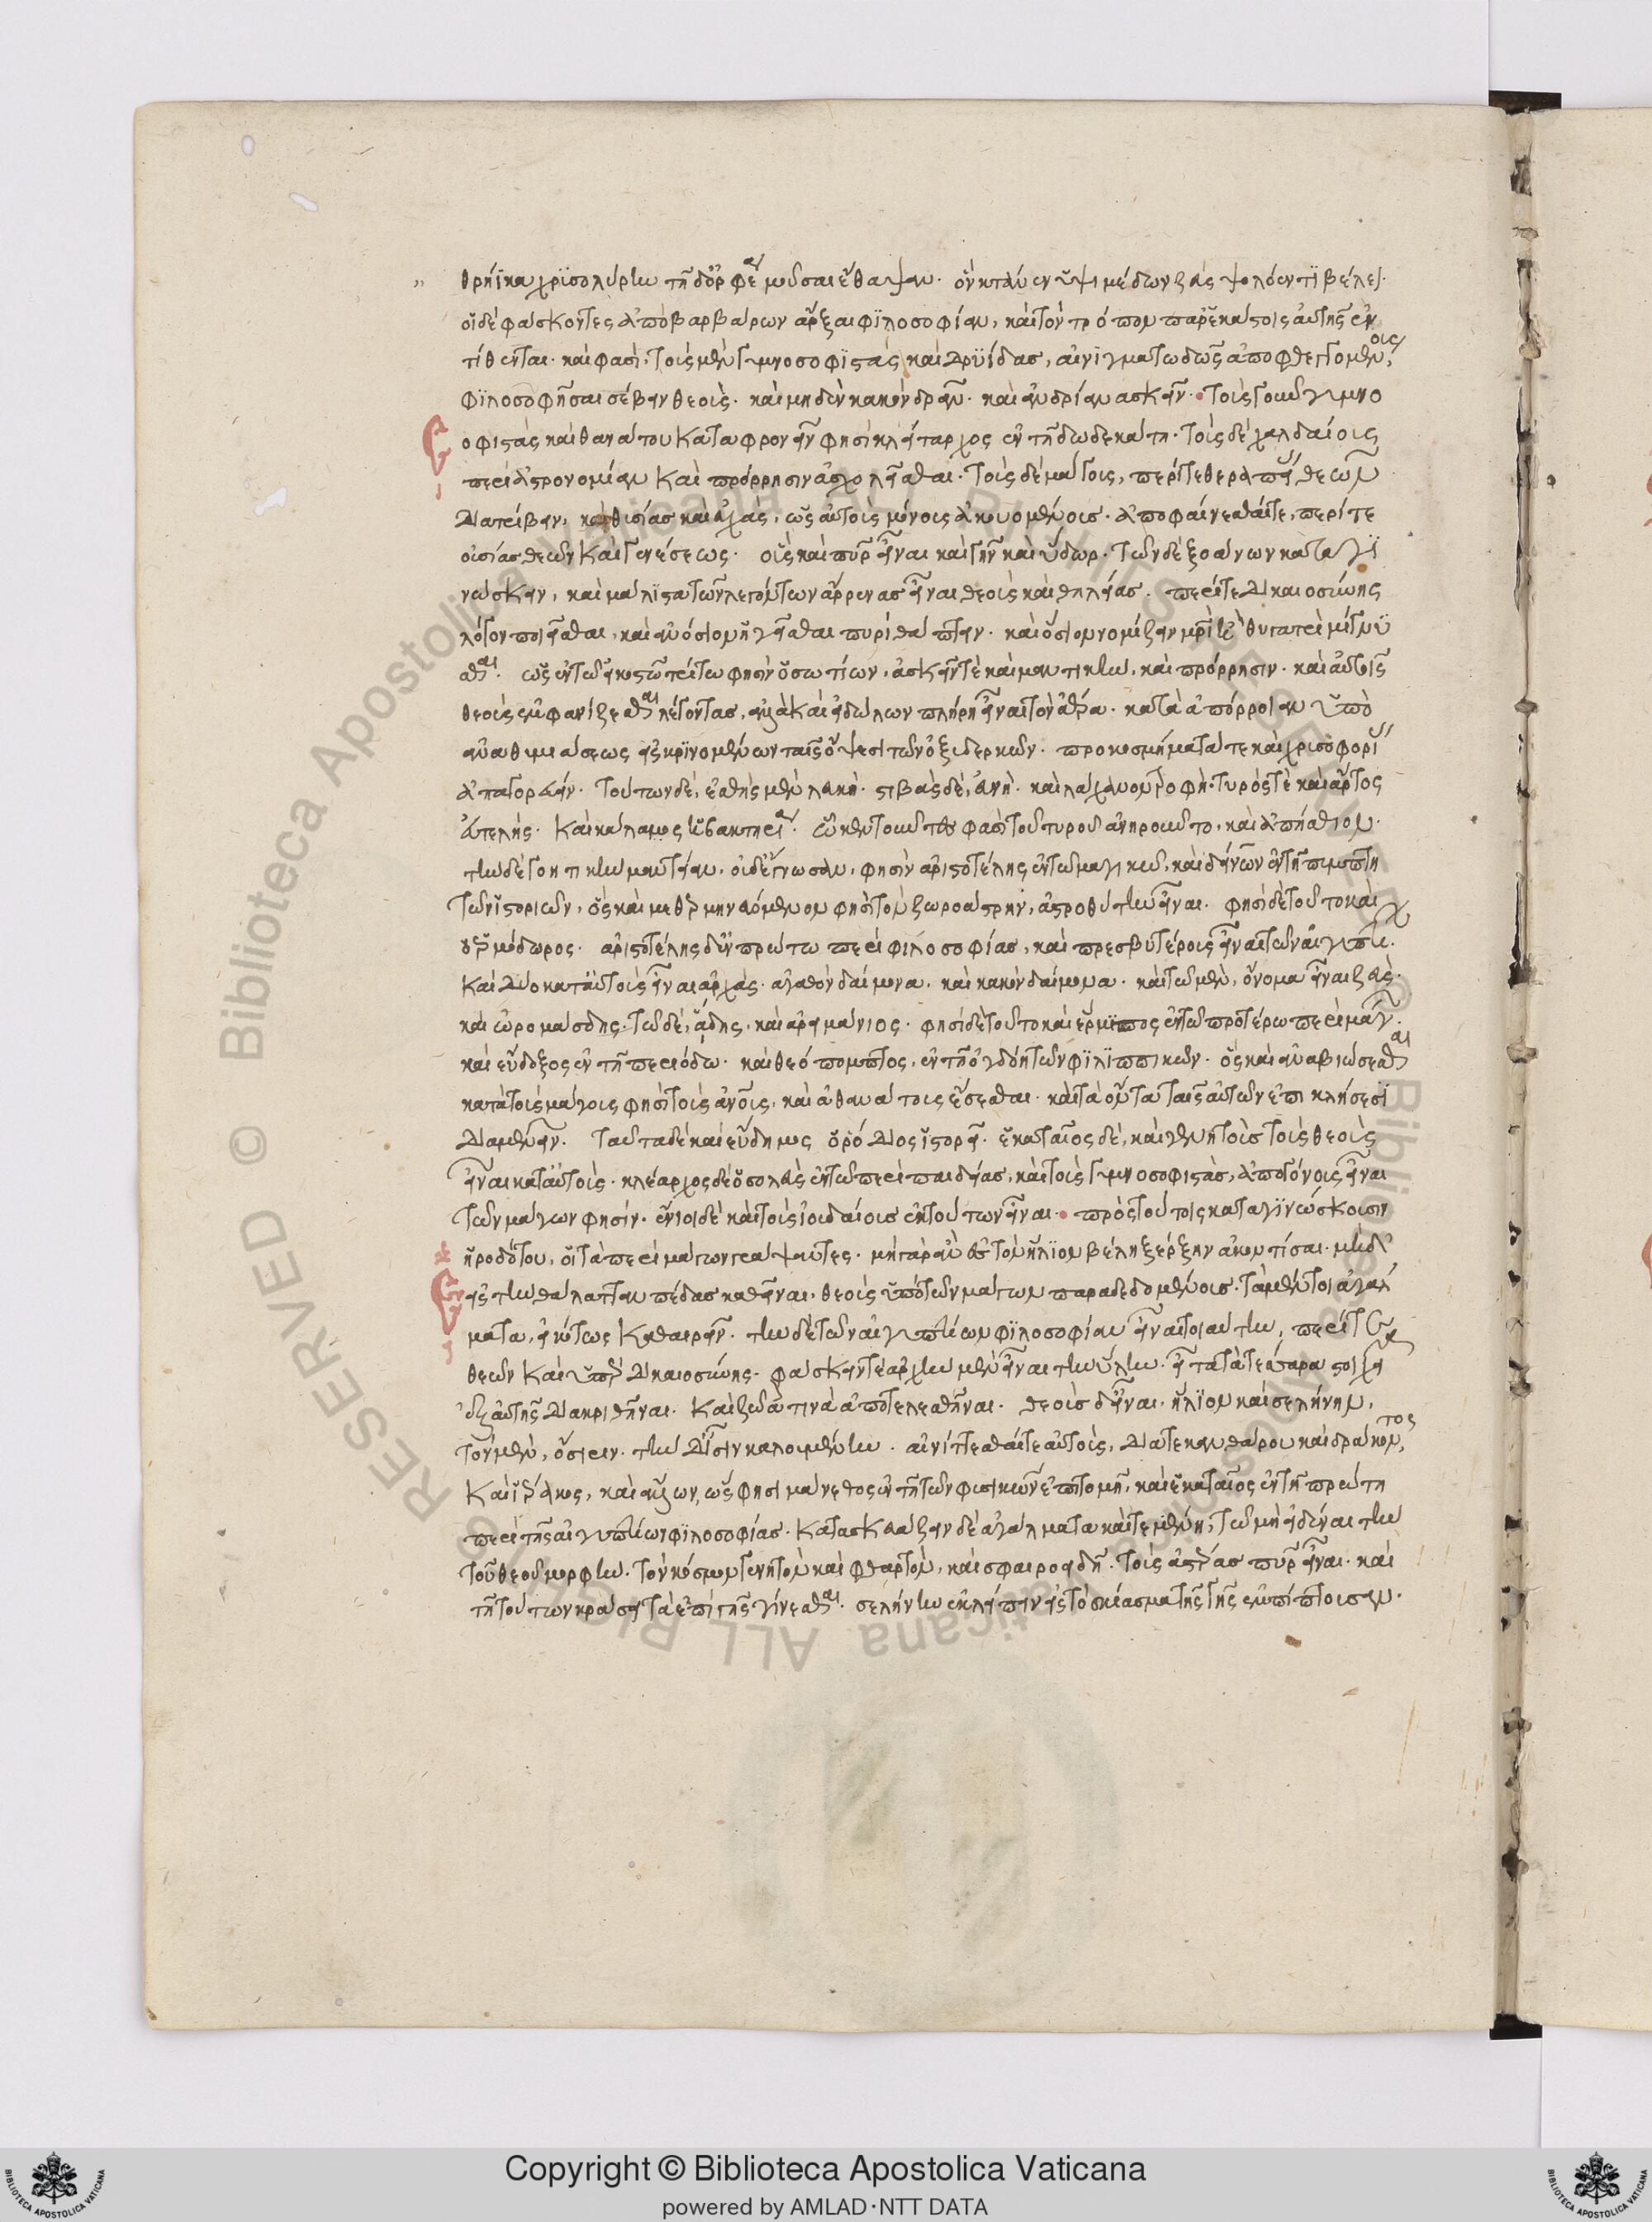 θρήϊκα χρυσολύρην τῆδ' ὀρφέα μοῦσαι ἔθαψαν. ὃν κτάνεν ὑψιμέδων ζεὺς ψολόεντι βέλει.
οἱ δὲ φάσκοντες ἀπὸ βαρβάρων ἄρξαι φιλοσοφίαν, καὶ τὸν τρόπον παρ' ἑκάστοις αὐτῆς ἐκ
τίθενται. καὶ φασὶ. τοὺς μὲν γυμνοσοφιστὰς καὶ δρυΐδας, αἰνιγματωδῶς ἀποφθεγγομένους,
φιλοσοφῆσαι σέβειν θεοὺς. καὶ μηδὲν κακὸν δρᾶν. καὶ ἀνδρίαν ἀσκεῖν. τοὺς γοῦν γυμνο
σοφιστὰς καὶ θανάτου καταφρονεῖν φησὶ κλείταρχος ἐν τῆ δωδεκάτη. τοὺς δὲ χαλδαίους
περὶ ἀστρονομίαν καὶ πρόρρησιν ἀσχολεῖσθαι. τοὺς δὲ μάγους, περί τε θεραπείας θεῶν
διατρίβειν, καὶ θυσίας καὶ εὐχὰς, ὡς αὐτοὺς μόνους ἀκουομένους. ἀποφαίνεσθαί τε, περί τε
οὐσίας θεῶν καὶ γενέσεως. οὓς καὶ πῦρ εἶναι καὶ γῆν καὶ ὕδωρ. τῶν δὲ ξοάνων καταγι
νώσκειν, καὶ μάλιστα τῶν λεγόντων ἄρρενας εἶναι θεοὺς καὶ θηλείας. περί τε δικαιοσύνης
λόγον ποιεῖσθαι, καὶ ἀνόσιον ἡγεῖσθαι πυρὶ θάπτειν. καὶ ὅσιον νομίζειν μητρὶ ἢ θυγατρὶ μίγνυ
σθαι. ὡς ἐν τῶ εἰκοστῶ τρίτω φησὶν ὁ σωτίων. ἀσκεῖν τὲ καὶ μαντικὴν, καὶ πρόρρησιν. καὶ αὐτοῖς
θεοὺς ἐμφανίζεσθαι λέγοντας, ἀλλὰ καὶ εἰδώλων πλήρη εἶναι τὸν ἀέρα. κατὰ ἀπόρροιαν ὑπὸ
ἀναθυμιάσεως εἰσκρινομένων ταῖς ὄψεσι τῶν ὀξυδερκῶν. προκοσμήματά τε καὶ χρυσοφορί
ἀπαγορεύειν. τούτων δὲ, ἐσθὴς μὲν λευκὴ. στιβὰς δὲ, εὐνὴ. καὶ λάχανον τροφὴ. τυρός τὲ καὶ ἄρτος
εὐτελὴς. καὶ κάλαμος ἡ βακτηρία. ὧ κεντοῦντες φασὶ τοῦ τυροῦ ἀνηροῦντο, καὶ ἀπήσθιον.
τὴν δὲ γοητικὴν μαντείαν, οὐδ' ἔγνωσαν, φησὶν ἀριστοτέλης ἐν τῶ μαγικῶ, καὶ δείνων ἐν τῆ πέμπτη
τῶν ἱστοριῶν, ὃς καὶ μεθερμηνευόμενον φησὶ τὸν ζωροάστρην, ἀστροθύτην εἶναι. φησὶ δὲ τοῦτο καὶ
ὁ ἑρμόδωρος. ἀριστοτέλης δ' ἐν πρώτω περὶ φιλοσοφίας, καὶ πρεσβυτέρους εἶναι τῶν αἰγυπτί.
καὶ δύο κατ' αὐτοὺς εἶναι ἀρχὰς. ἀγαθὸν δαίμονα, καὶ κακὸν δαίμονα. καὶ τῶ μὲν, ὄνομα εἶναι ζεὺς.
καὶ ὠρομάσδης. τῶ δὲ, ἅδης. καὶ ἀρειμάνιος. φησὶ δὲ τοῦτο καὶ ἕρμιππος ἐν τῶ προτέρω περὶ μάγ.
καὶ εὔδοξος ἐν τῆ περιόδω. καὶ θεόπομπτος, ἐν τῆ ὀγδόη τῶν φιλιππικῶν. ὃς καὶ ἀναβιώσεσθαι
κατὰ τοὺς μάγους φησὶ τοὺς ἀνους, καὶ ἀθανάτους ἔσεσθαι. καὶ τὰ ὄντα ταῖς αὐτῶν ἐπικλήσεσι
διαμένειν. ταῦτα δὲ καὶ εὔδημος ὁ ῥόδιος ἱστορεῖ. ἑκαταῖος δὲ, καὶ γενητοὺς τοὺς θεοὺς
εἶναι κατ' αὐτοὺς. κλέαρχος δὲ ὁ σολεὺς ἐν τῶ περὶ παιδείας, καὶ τοὺς γυμνοσοφιστὰς, ἀπογόνους εἶναι
τῶν μάγων φησίν. ἔνιοι δὲ καὶ τοὺς ἰουδαίους ἐκ τούτων εἶναι. πρὸς τούτοις καταγινώσκουσιν
ἡροδότου, οἱ τὰ περὶ μάγων γράψαντες. μὴ γὰρ ἂν εἰς τὸν ἥλιον βέλη ξέρξην ἀκοντίσαι. μηδ'
εἰς τὴν θάλατταν πέδας καθεῖναι, θεοὺς ὑπὸ τῶν μάγων παραδεδομένους. τὰ μέντοι ἀγάλ
ματα, εἰκότως καθαιρεῖν. τὴν δὲ τῶν αἰγυπτίων φιλοσοφίαν εἶναι τοιαύτην, περί τε
θεῶν καὶ ὑπὲρ δικαιοσύνης. φάσκειν τὲ ἀρχὴν μὲν εἶναι τὴν ὕλην. εἶτα τὰ τέσσαρα στοιχεῖ
ἐξ αὐτῆς διακριθῆναι. καὶ ζῶά τινὰ ἀποτελεσθῆναι. θεοὺς δ' εἶναι, ἥλιον καὶ σελήνην,
τὸν μὲν, ὄσιριν. τὴν δ' ἶσιν καλουμένην. αἰνίττεσθαί τε αὐτοὺς, διά τε κανθάρου καὶ δράκοντος,
καὶ ἱέρακος, καὶ ἄλλων, ὥς φησι μάνεθος ἐν τῆ τῶν φυσικῶν ἐπιτομῆ, καὶ ἑκαταῖος ἐν τῆ πρώτη
περὶ τῆς αἰγυπτίων φιλοσοφίας. κατασκευάζειν δὲ ἀγάλματα καὶ τεμένη, τῶ μὴ εἰδέναι τὴν
τοῦ θεοῦ μορφὴν. τὸν κόσμον γενητὸν καὶ φθαρτὸν, καὶ σφαιροειδῆ. τοὺς ἀστέρας πῦρ εἶναι. καὶ
τῆ τούτων κράσει τὰ ἐπὶ τῆς γίνεσθαι. σελήνην ἐκλείπειν εἰς τὸ σκίασμα τῆς γῆς ἐμπίπτουσαν.